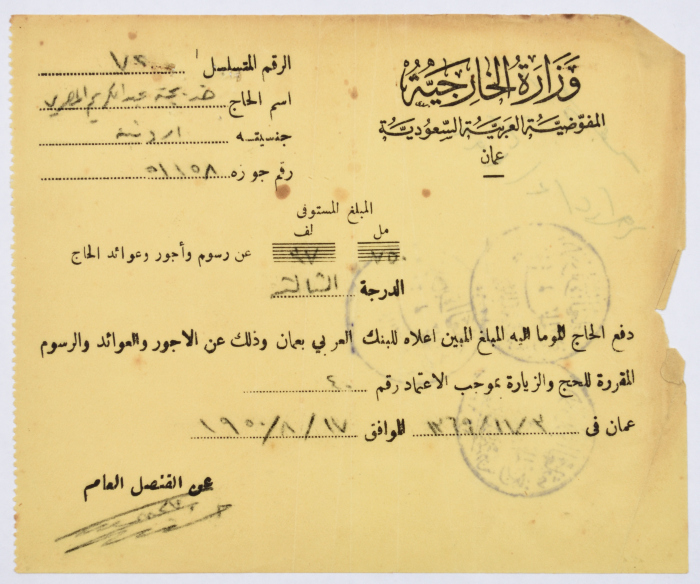 وزارة الخارجية
المفوضية العربية السعودية
عمان
الرقم المتسلسل
اسم الحاج خديجة عبدالكريم المصري
جنسيته اردنية
رقم جوازه
المبلغ المستوفى
مل لف
٧٥٠ ٣٧ عن رسوم وأجور وعوائد الحاج
الدرجة الثالثة
دفع الحاج الموما اليه المبلغ المبين اعلاه للبنك العربي بعمان وذلك عن الاجور والعوائد والرسوم
المقررة للحج والزيارة بموجب الاعتماد رقم ٤٠
عمان في ٣/١١/١٣٦٩ الموافق ١٧/٨/١٩٥٠
عن القنصل العام